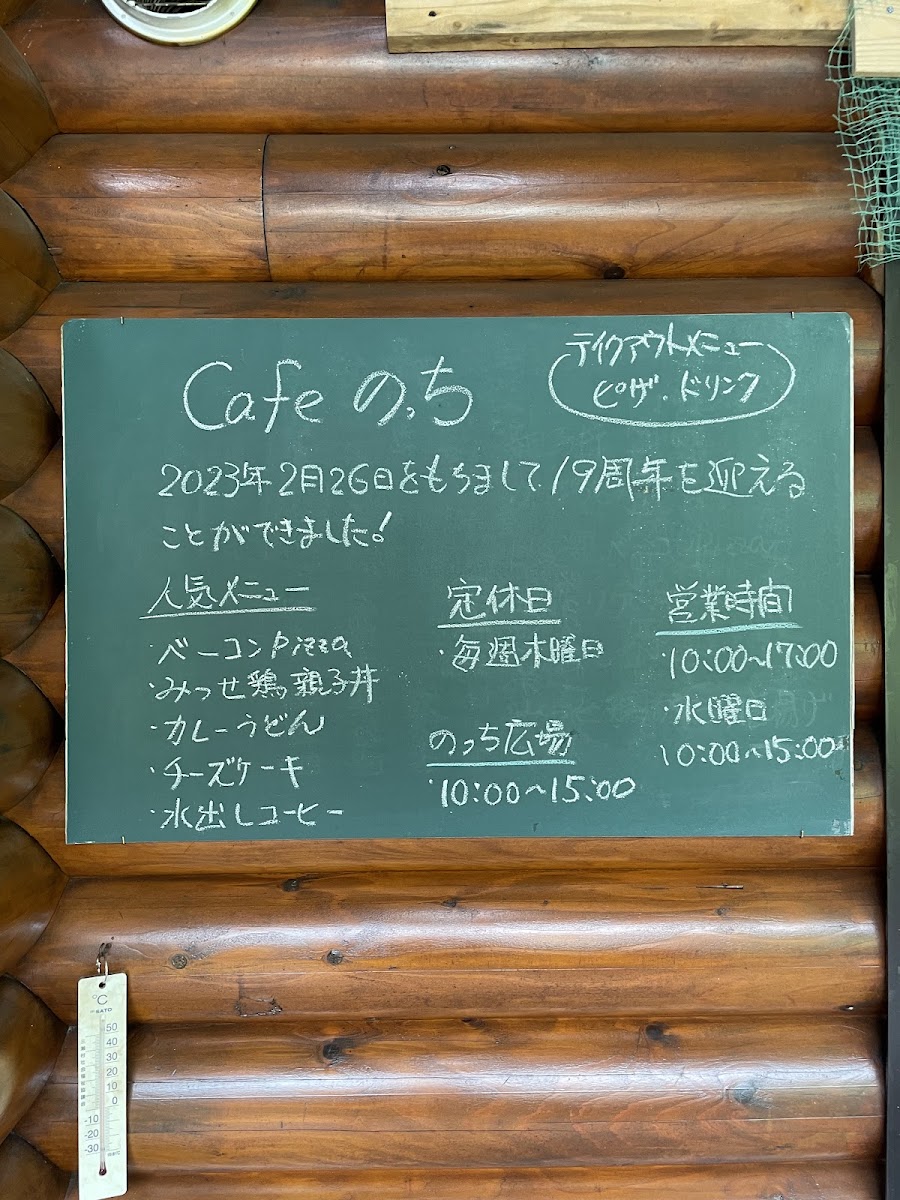 Cafe のっち
テイクアウトメニュー
ピザ・ドリンク
2023年2月26日をもちまして19周年を迎える
ことができました!
人気メニュー
・ベーコンPizza
・みつせ鶏親子丼
・カレーうどん
・チーズケーキ
・水出しコーヒー
定休日
・毎週木曜日
のっち広場
・10:00〜15:00
営業時間
・10:00〜17:00
・水曜日
10:00〜15:00
°C
SATO
50
40
30
20
10
0
-10
-20
-30